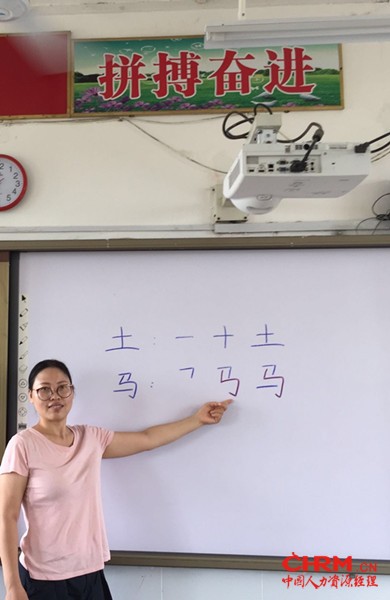 拼搏奋进
土：一 十 土
马：㇕ 马 马
CHRM.CN
中国人力资源经理